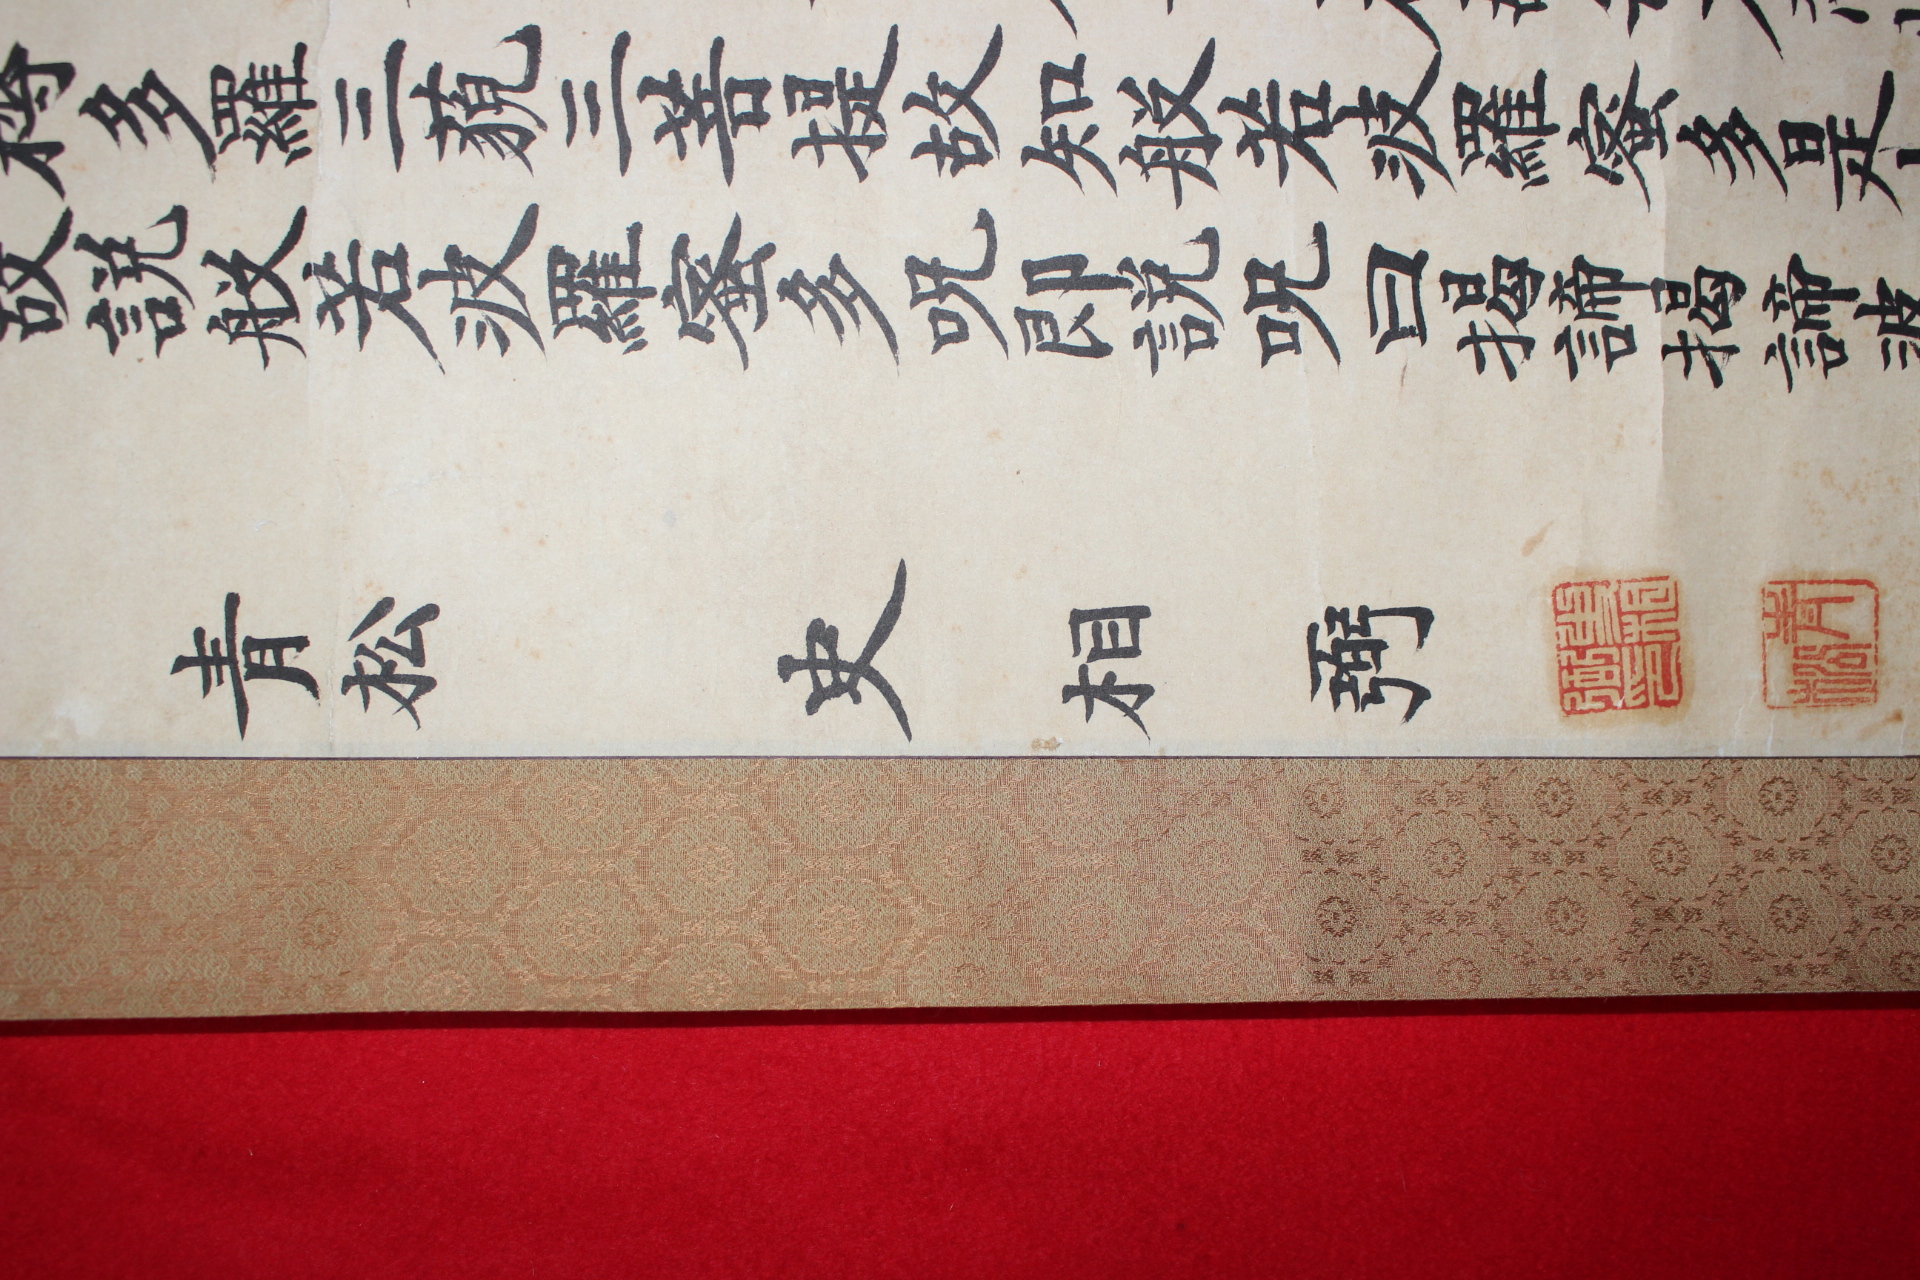 得多羅三藐三菩提故知般若波羅蜜多是
故說般若波羅蜜多呪即說呪曰揭諦揭諦波
青松 史相弼
青松